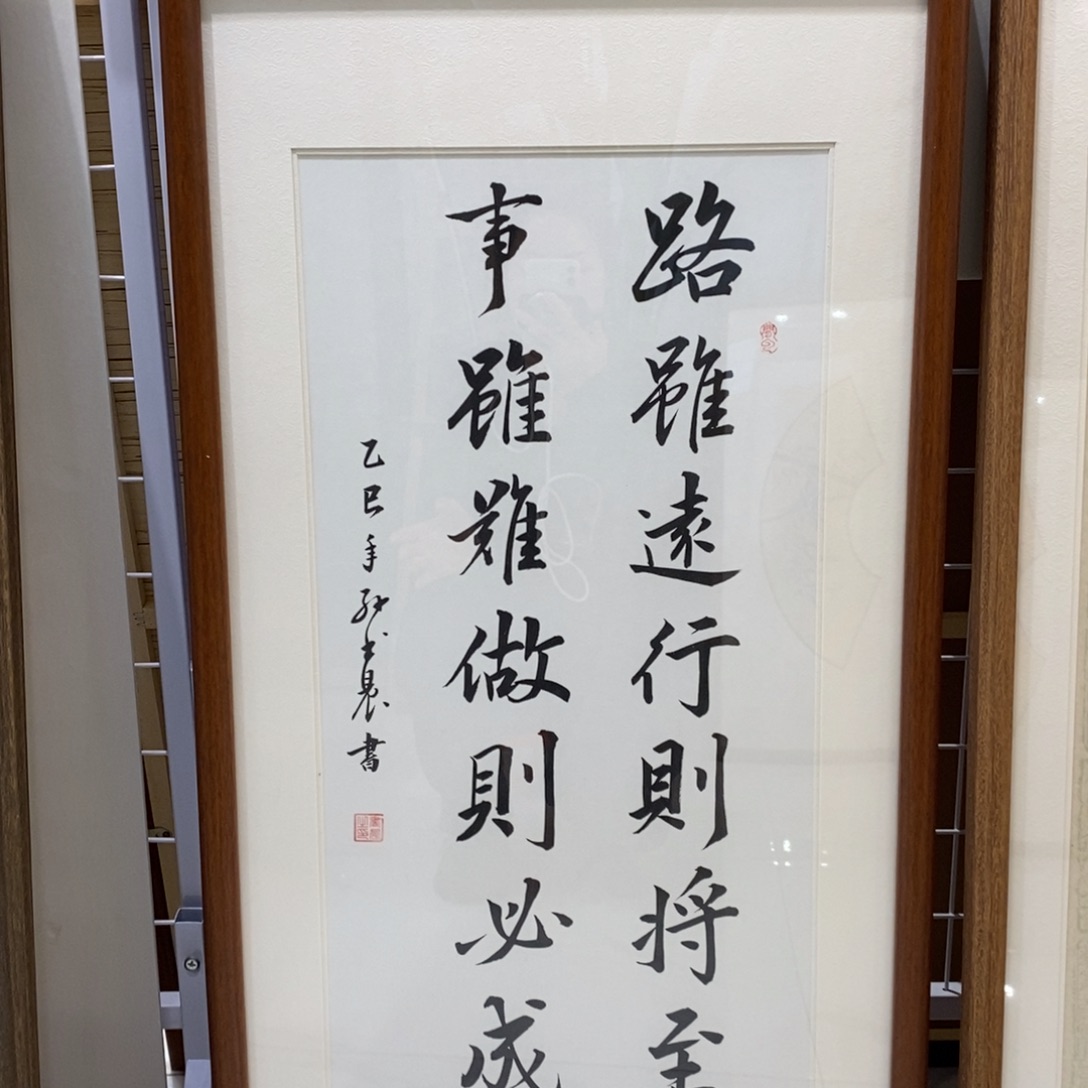 路雖遠行則將至
事雖難做則必成
乙巳年孙書晨書